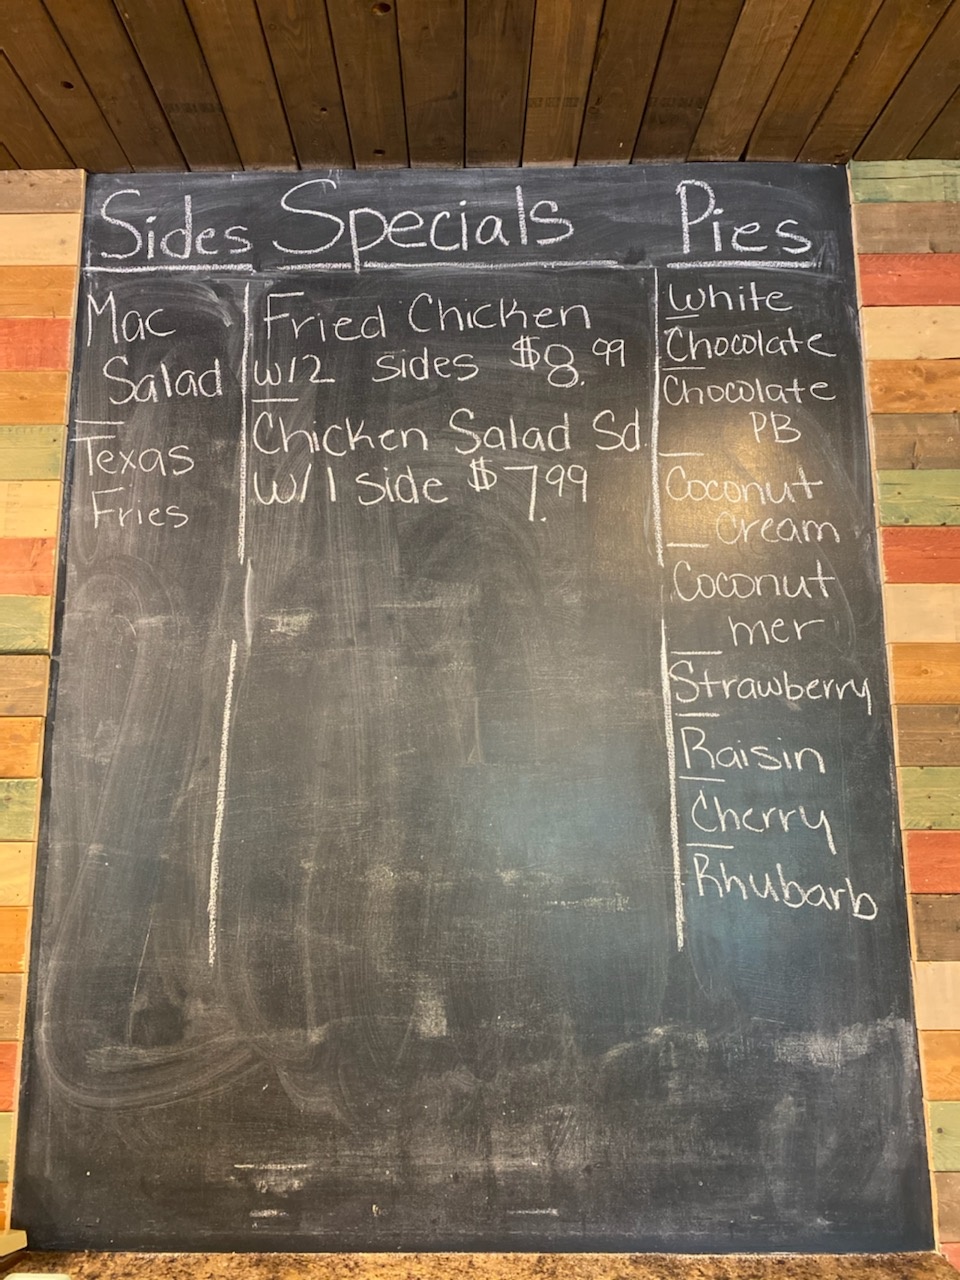 Sides
Mac
Salad
Texas
Fries
Specials
Fried Chicken
w/2 sides $8.99
Chicken Salad Sd.
w/1 side $7.99
Pies
White
Chocolate
Chocolate
PB
Coconut
Cream
Coconut
mer
Strawberry
Raisin
Cherry
Rhubarb